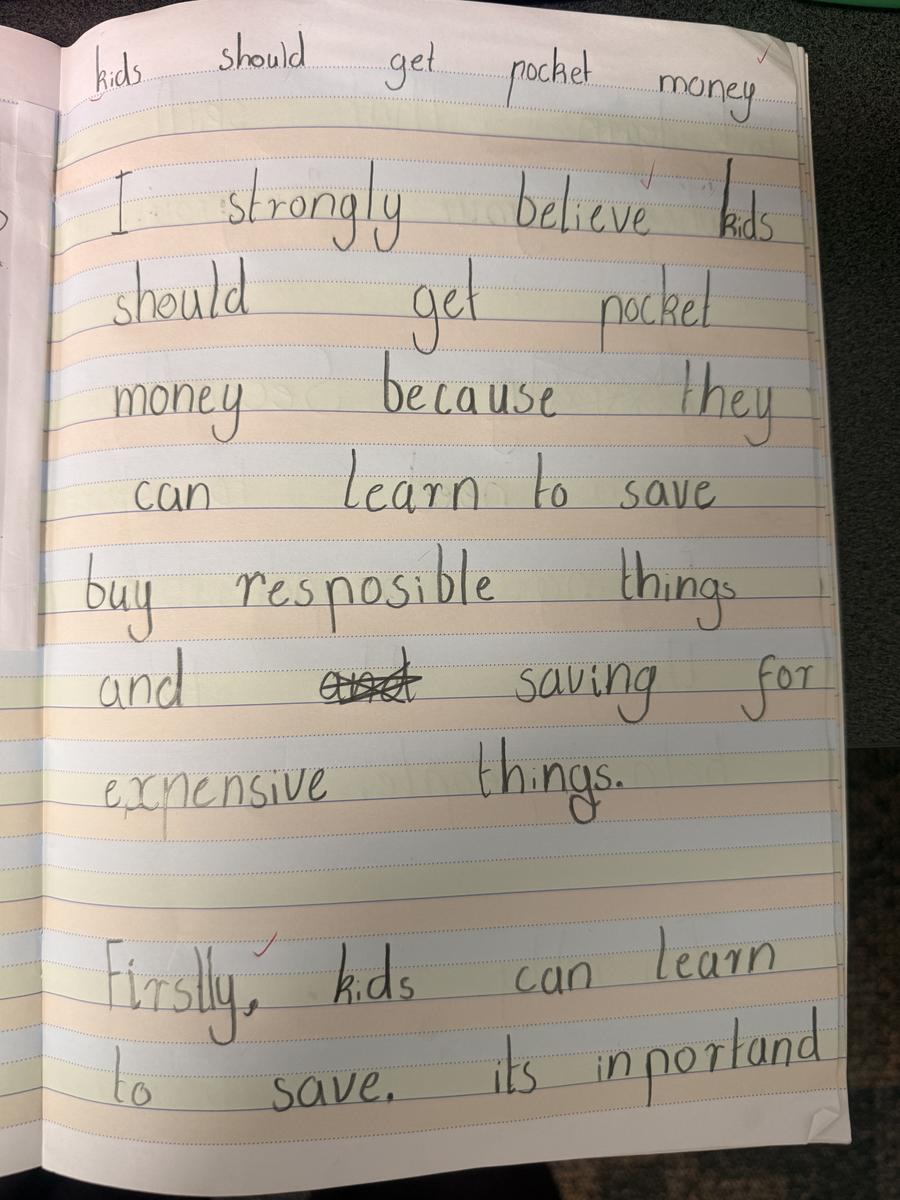 kids should get pocket money
I strongly believe kids
should get pocket
money because they
can learn to save
buy resposible things
and and saving for
expensive things.
Firstly, kids can learn
to save. its inportand